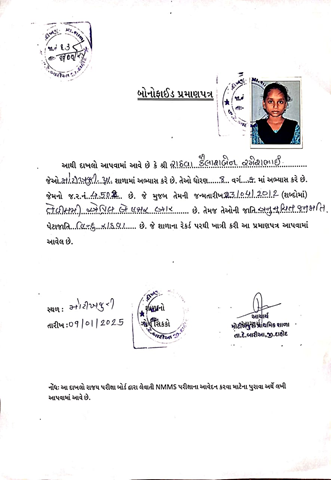 બોનોફાઈડ પ્રમાણપત્ર
આથી દાખલો આપવામાં આવે છે કે શ્રી રાઠવા કૈલાશબેન
જેઓ મોટીખજુરી પ્રા. શાળામાં અભ્યાસ કરે છે. તેઓ ધોરણ 8 વર્ગ ક માં અભ્યાસ કરે છે.
જેમનો જ.ર.નં. 4502 છે. જે મુજબ તેમની જન્મતારીખ 23/04/2012 (શબ્દોમાં)
ત્રેવીસમી એપ્રિલ બે હજાર બાર છે. તેમજ તેઓની જાતિ અનુસૂચિત જનજાતિ,
પેટાજાતિ હિન્દુ રાઠવા છે. જે શાળાના રેકર્ડ પરથી ખાત્રી કરી આ પ્રમાણપત્ર આપવામાં
આવેલ છે.
સ્થળ: મોટીખજુરી
તારીખ: 09/01/2025
શાળાનો
ગોળ સિક્કો
આચાર્ય
મોટીખજુરી પ્રાથમિક શાળા
તા.દે.બારીઆ,જી.દાહોદ
નોંધ: આ દાખલો રાજ્ય પરીક્ષા બોર્ડ દ્વારા લેવાતી NMMS પરીક્ષાના આવેદન કરવા માટેના પુરાવા અર્થે લખી
આપવામાં આવે છે.